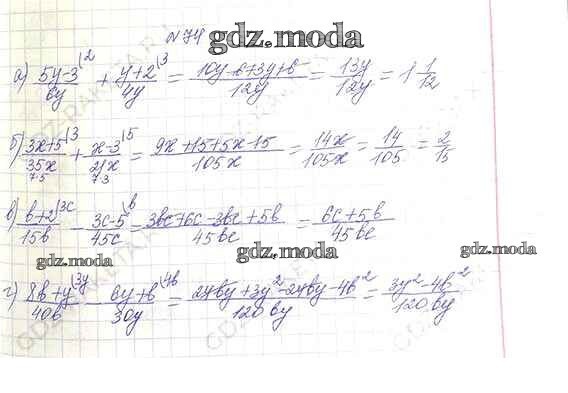 № 74
gdz.moda
а) (5y-3)/6y \2 + (y+2)/4y \3 = (10y-6+3y+6)/12y = 13y/12y = 1 1/12
б) (3x+5)/35x \3 + (x-3)/21x \5 = (9x+15+5x-15)/105x = 14x/105x = 14/105 = 2/15
7·5 7·3
в) (b+2)/15b \3c - (3c-5)/45c \b = (3bc+6c-3bc+5b)/45bc = (6c+5b)/45bc
gdz.moda gdz.moda gdz.moda
г) (8b+y)/40b \3y - (6y+b)/30y \4b = (24by+3y²-24by-4b²)/120by = (3y²-4b²)/120by